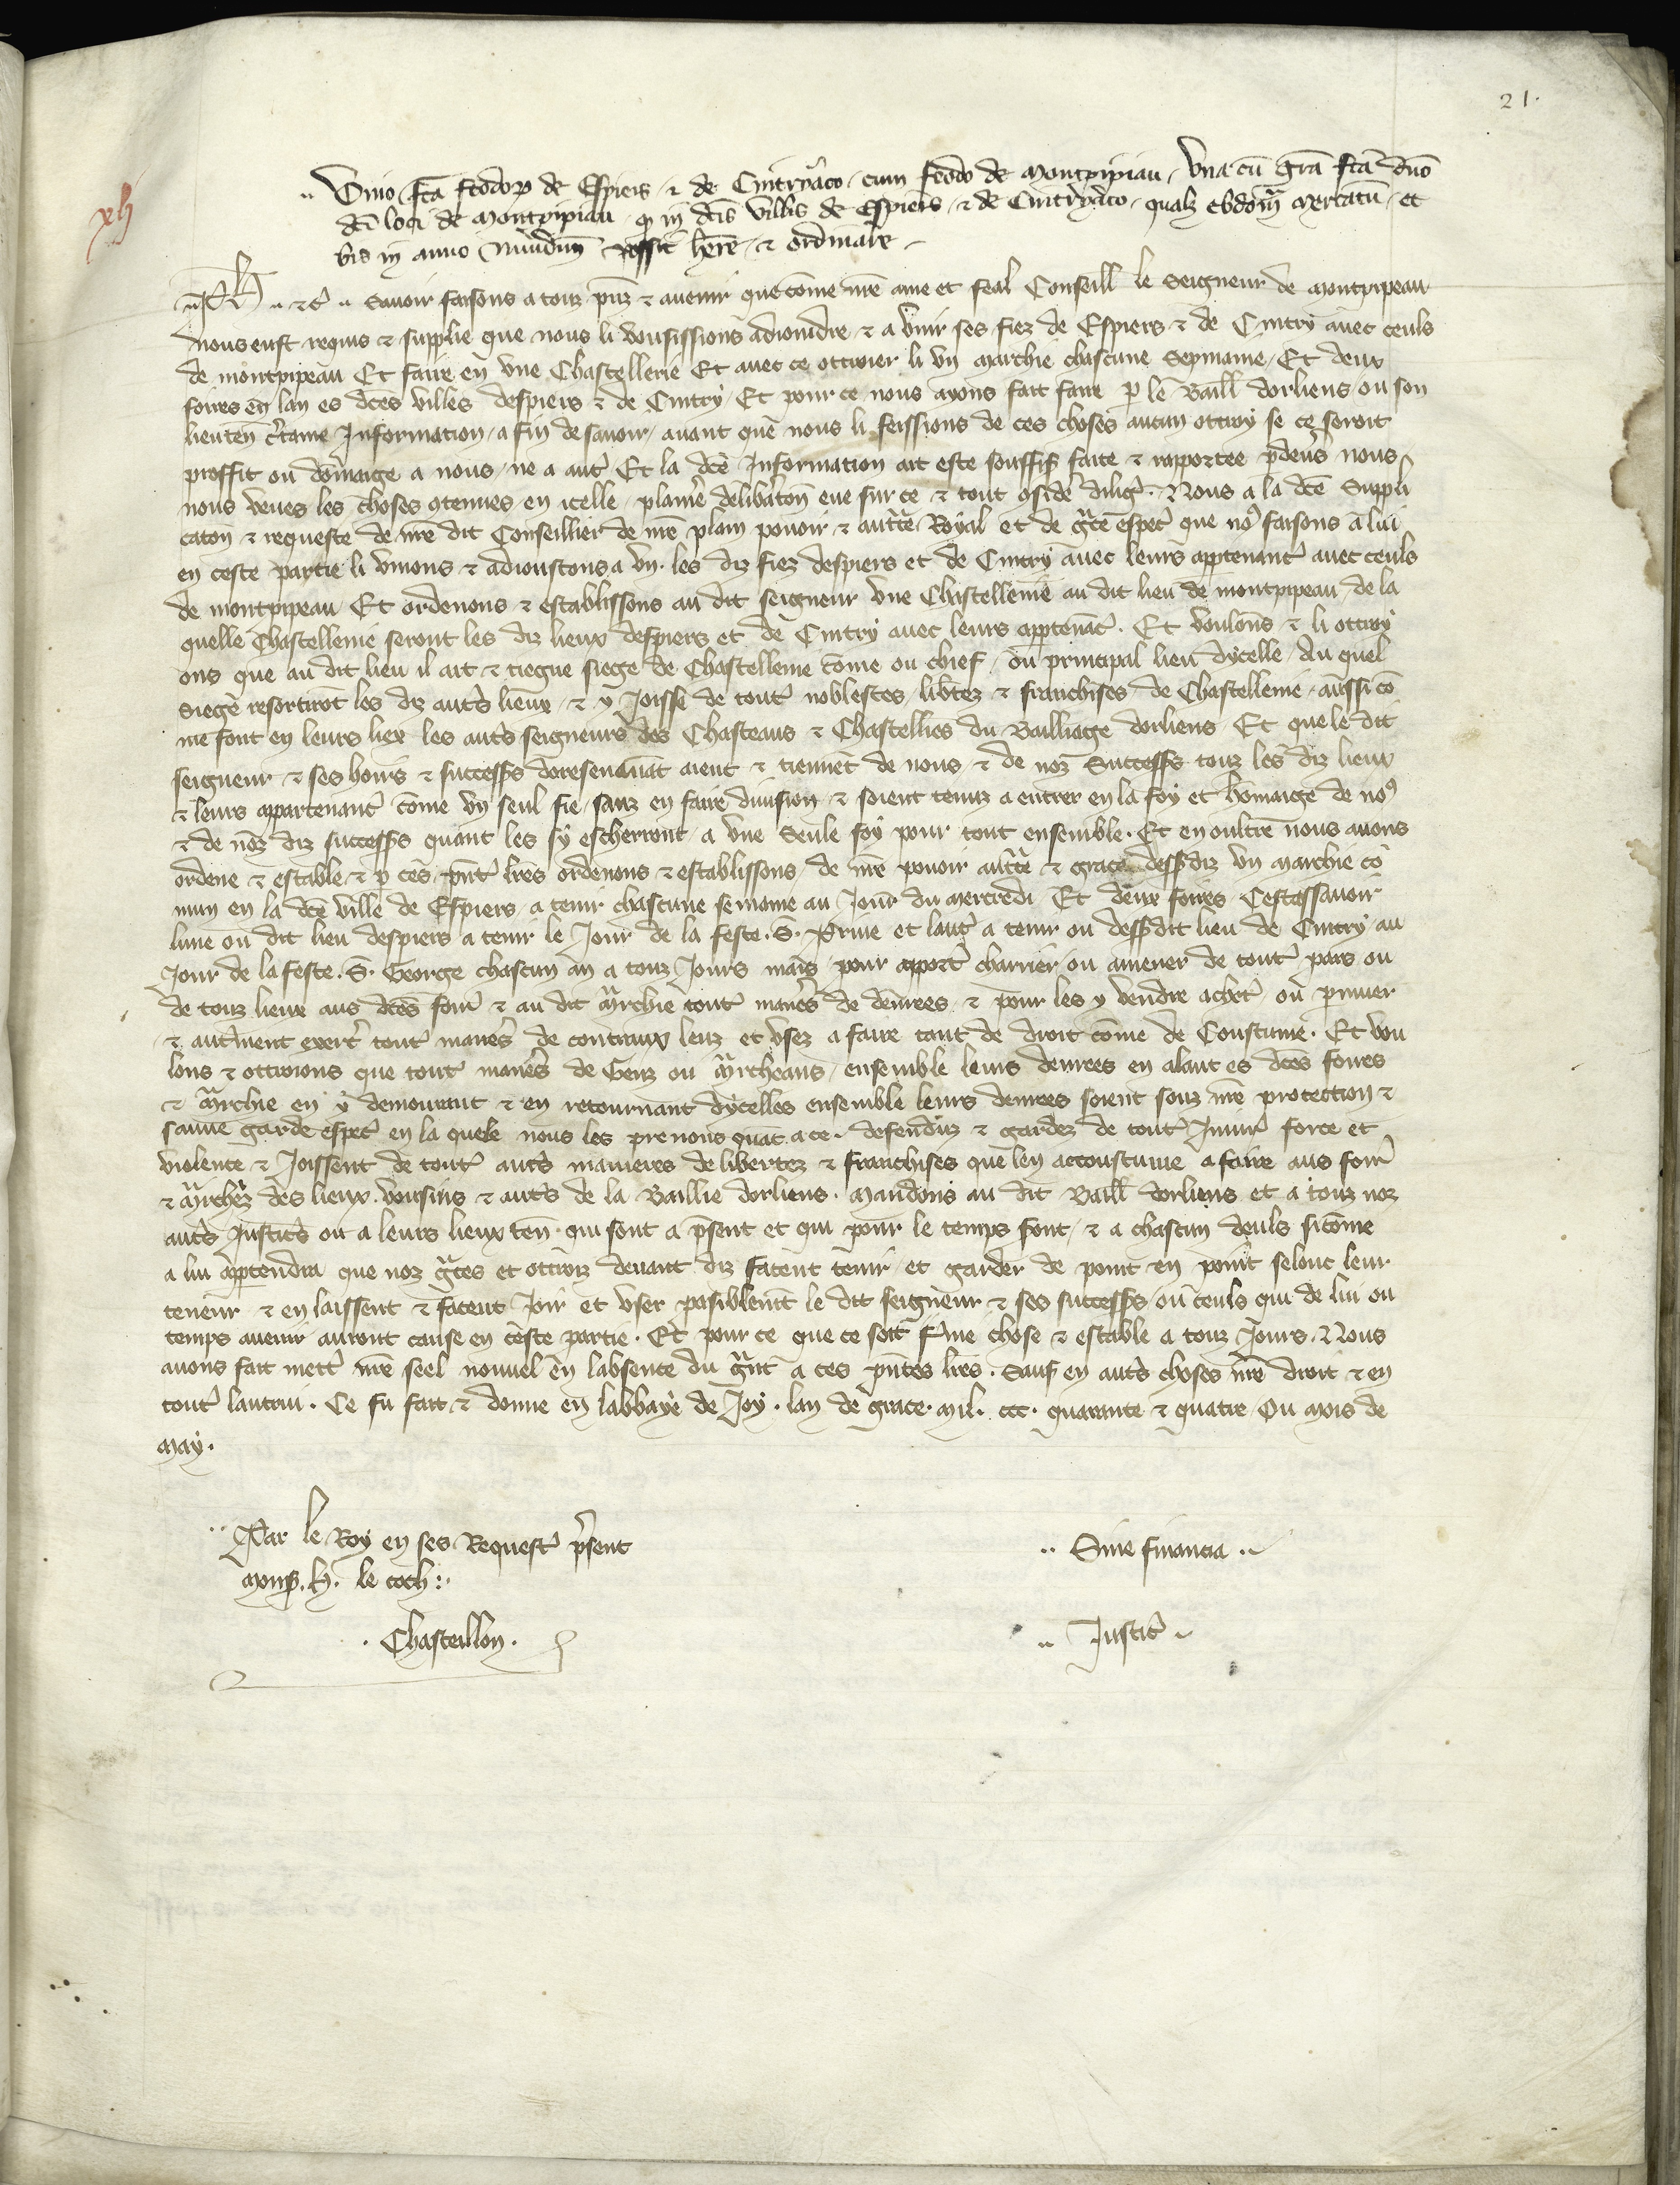 21.
xl
Unio fcā feodoꝝ de Espiers ⁊ de Cintryaco cum feodo de Montpipiau, vna cū grā fcā dno
dci loci de Montpipiau ꝙ in dcis villis de Espiers ⁊ de Cintryaco qualz ebdom̄ mercatū et
bis in anno nundin possit hēre ⁊ ordinare
Ph ⁊c Sauoir faisons a touz pn̄z ⁊ auenir que cōme nr̄e ame et feal Conseill le Seigneur de Montpipeau
nous eust requis ⁊ supplie que nous li vousissions adioindre ⁊ a vnir ses fiez de Espiers ⁊ de Cintry auec ceuls
de Montpipeau Et faire en vne Chastellerie Et auec ce ottroier li vn Marchie chascune Sepmaine Et deux
foires en lan es dces villes despiers ⁊ de Cintry Et pour ce nous ayons fait faire p le Baill dorliens ou son
lieuten c̄taine Information a fin de sauoir auant que nous li feissions de ces choses aucun ottroy se ce seroit
proffit ou dōmaige a nous ne a aut̄ Et la dcē Information ait este souffis faite ⁊ rapportee pdeuers nous
nous veues les choses ꝯtenues en icelle plaine delibaton eue sur ce ⁊ tout ꝯsidē diliḡ Nous a la dcē Suppli
cation ⁊ requeste de nr̄e dit Conseillier de nr̄e plain pouoir ⁊ auctte Royal et de gce espec̄ que noꝰ faisons a lui
en ceste partie li vnions ⁊ adioustons a vn les diz fiez despiers et de Cintry auec leurs apptenanc̄ auec ceuls
de Montpipeau Et ordenons ⁊ establissons au dit seigneur vne Chastellenie au dit lieu de montpipeau de la
quelle Chastellenie seront les diz lieux despiers et de Cintry auec leurs apptenāc̄ Et voulons ⁊ li ottroy
ons que au dit lieu il ait ⁊ tiegne siege de Chastellenie cōme ou chief ou principal lieu dycelle Au quel
siege resortirōt les diz aut̄s lieux ⁊ y Joisse de tout̄ noblesces libtez ⁊ franchises de Chastellenie aussi cō
me font en leurs liex les aut̄s seigneurs des Chasteaus ⁊ Chastellies du Bailliage dorliens Et que le dit
seigneur ⁊ ses hoirs ⁊ success̄s doresenauāt aient ⁊ tiennēt de nous ⁊ de noz Success̄s touz les diz lieux
⁊ leurs appartenanc̄ cōme vn seul fie sanz en faire diuision ⁊ soient tenuz a entrer en la foy et hōmaige de noꝰ
⁊ de noz diz success̄s quant les fy escherront a vne seule foy pour tout ensemble Et en oultre nous auons
ordene ⁊ estable ⁊ p ces pn̄t lr̄es ordenons ⁊ establissons de nr̄e pouoir auctte ⁊ grace dessdiz vn marchie cō
mun en la dcē ville de Espiers a tenir chascune semaine au Jour du mercredi Et deux foires Cestassauoir
lune ou dit lieu despiers a tenir le Jour de la feste S. Priue et laut̄ a tenir ou dessdit lieu de Cintry au
Jour de la feste S. George chascun an a touz Jours mais pour apport̄ charrier ou amener de tout̄ pars ou
de touz lieux aus dces foir̄ ⁊ au dit mrchie tout̄ manes de denrees ⁊ pour les y vendre achet̄ ou pmuer
⁊ autrement exerc̄ tout̄ manes de contraux leuz et vsez a faire tant de droit cōme de Coustume Et vou
lons ⁊ ottroions que tout̄ manes de Genz ou mrcheans ensemble leurs denrees en alant es dces foires
⁊ mrchie en y demourant ⁊ en retournant dycelles ensemble leurs denrees soient souz nr̄e protection ⁊
sauue garde espec̄ en la quele nous les prenons quāt a ce defenduz ⁊ gardez de tout̄ Iniur̄ force et
violence ⁊ Joissent de tout̄ aut̄s manieres de libertez ⁊ franchises que len accoustume a faire aus foir̄
⁊ mrchez des lieux voisins ⁊ aut̄s de la Baillie dorliens Mandons au dit Baill dorliens et a touz noz
aut̄s Justic̄s ou a leurs lieux ten qui sont a psent et qui pour le temps sont ⁊ a chascun deuls si cōme
a lui apptendra que noz gces et ottroiz deuant diz facent tenir et garder de point en point selonc leur
teneur ⁊ en laissent ⁊ facent Joir et vser pasiblemt le dit seigneur ⁊ ses success̄s ou ceuls qui de lui ou
temps auenir auront cause en ceste partie Et pour ce que ce soit fme chose ⁊ estable a touz Jours Nous
auons fait mett̄ nr̄e seel nouuel en labsence du grāt a ces pn̄tes lr̄es Sauf en aut̄s choses nr̄e droit ⁊ en
tout̄ lautrui Ce fu fait ⁊ donne en labbaye de Joy lan de grace mil ccc quarante ⁊ quatre Ou mois de
May
Par le Roy en ses Request̄ psent
Mons. H. le coch
Chasteillon
Sine financia
Justic̄